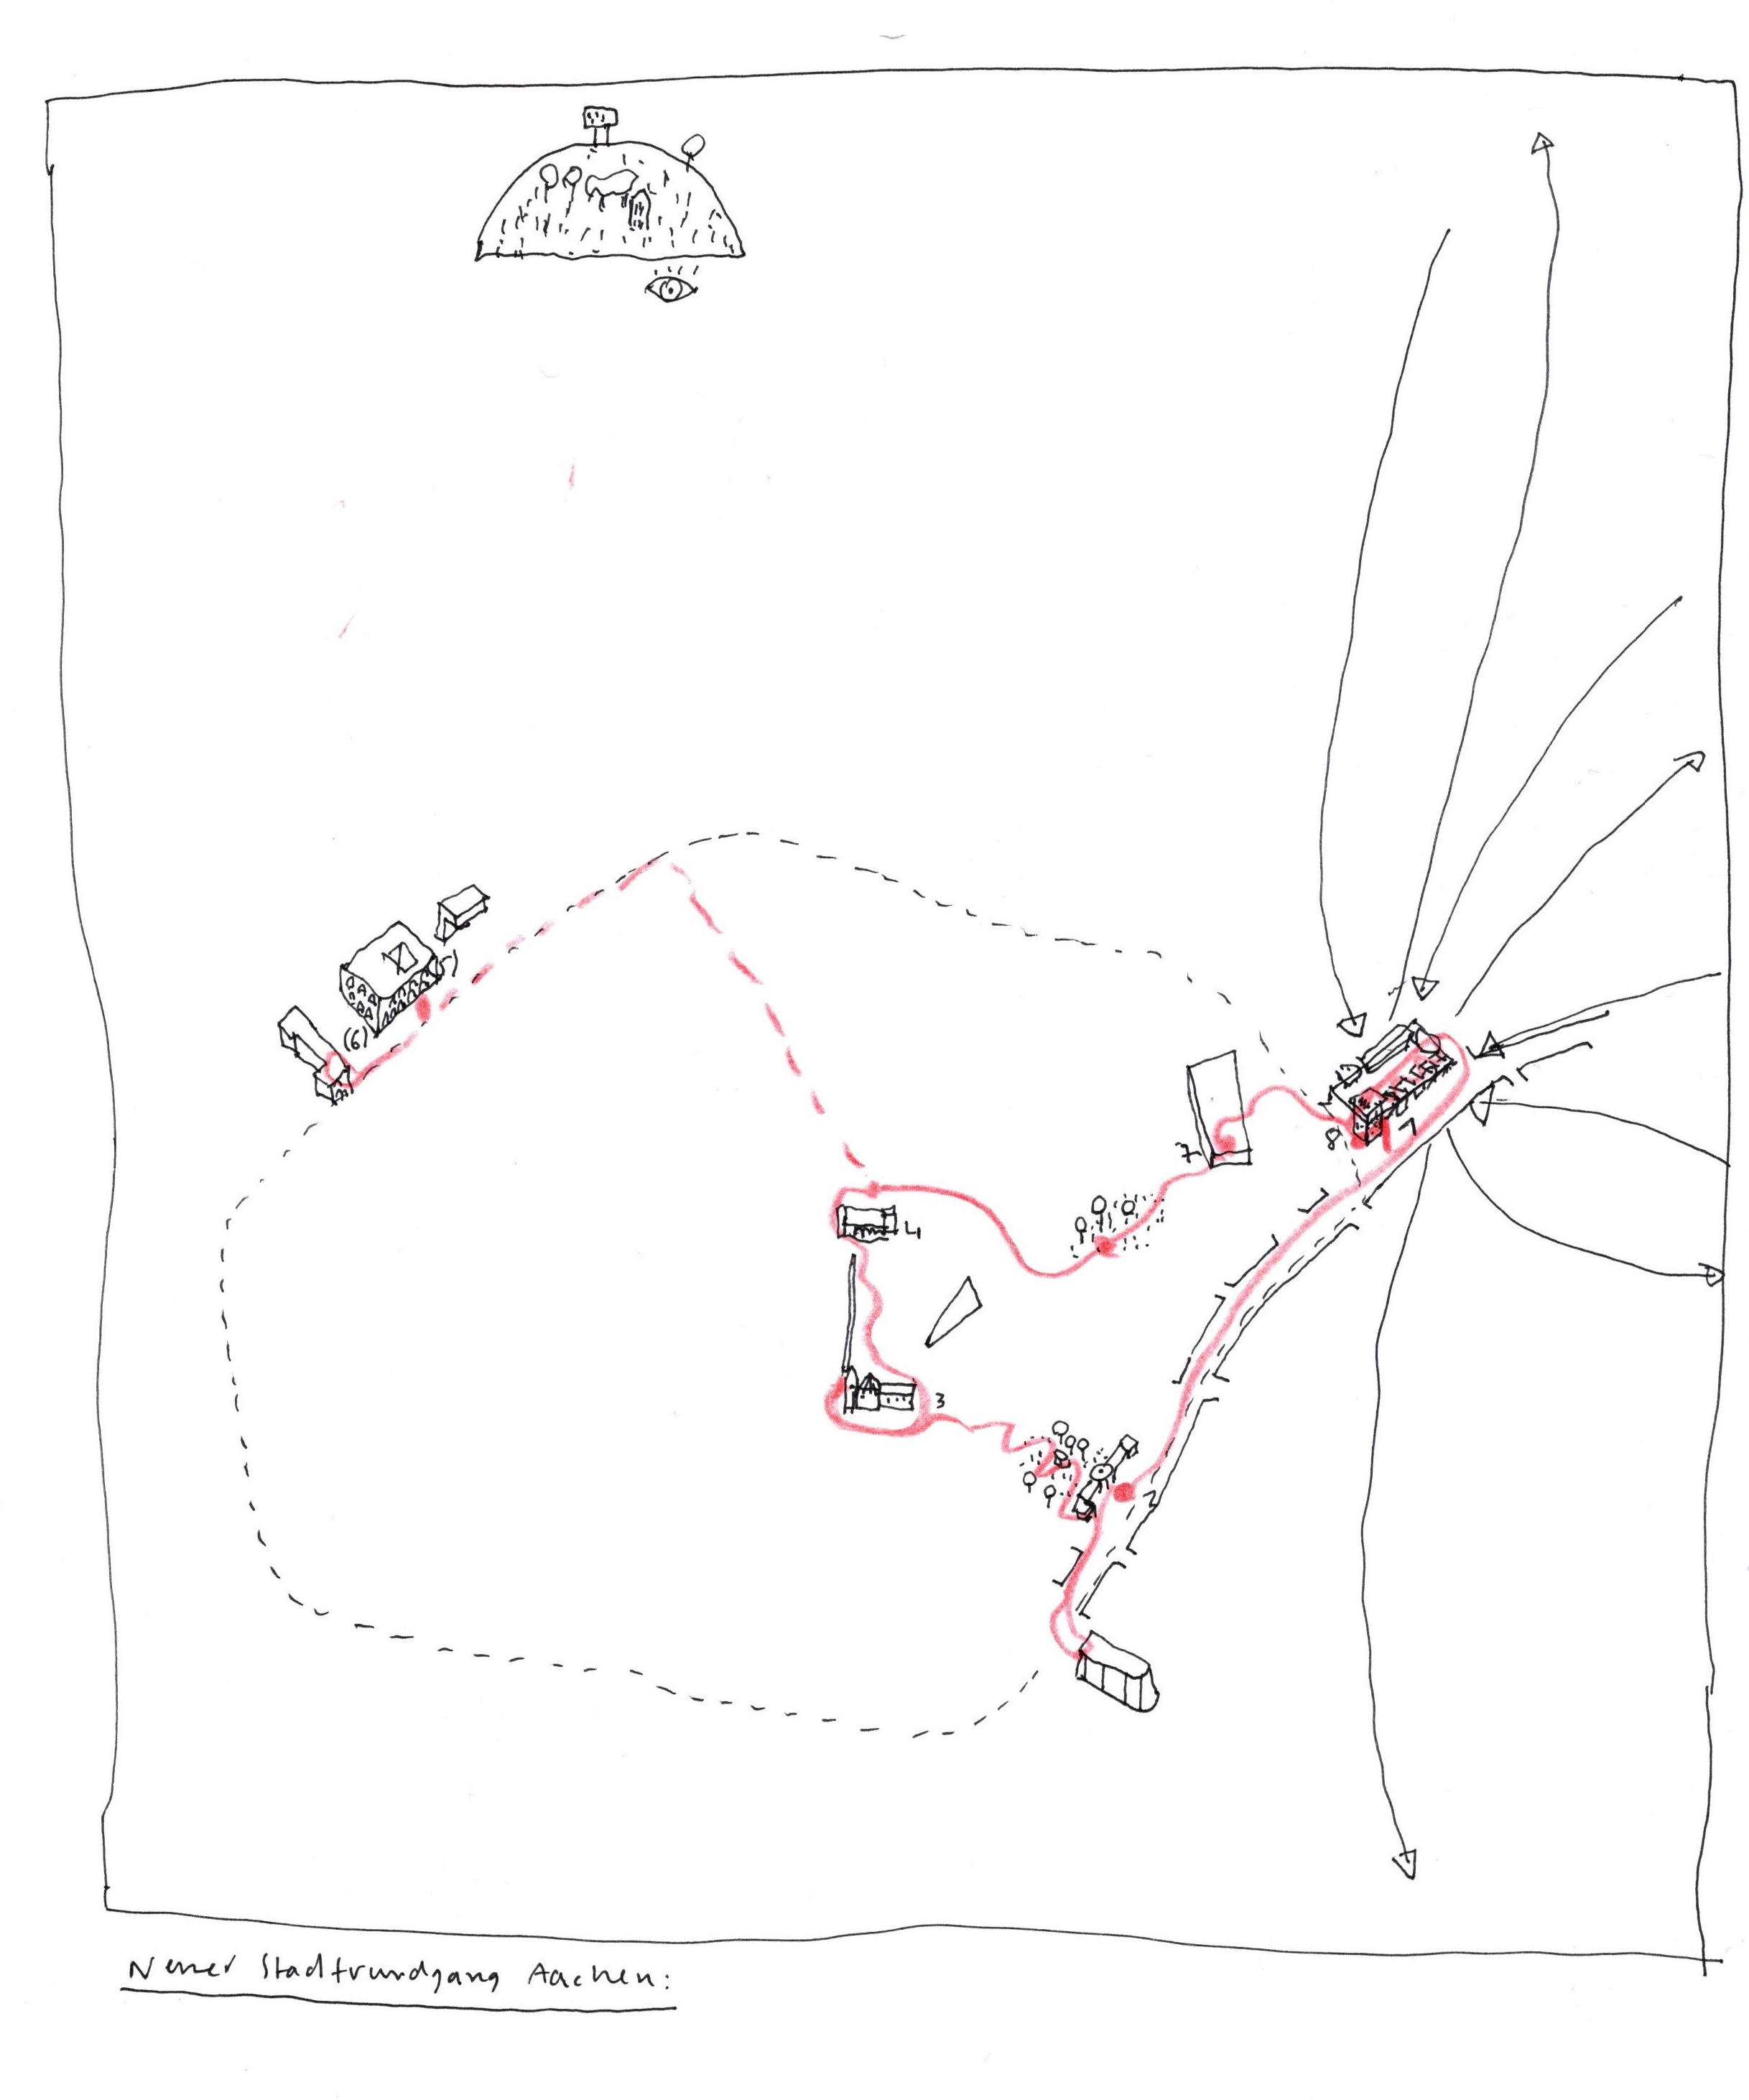 (5)
(6)
7
8
1
4
3
2
Neuer Stadtrundgang Aachen: